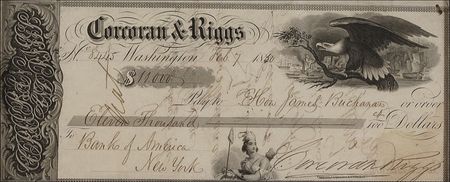 Corcoran & Riggs
Washington Feb 7
$11000
Hon James Buchanan or order
Eleven Thousand 100 Dollars
To Bank of America
New York
Corcoran & Riggs